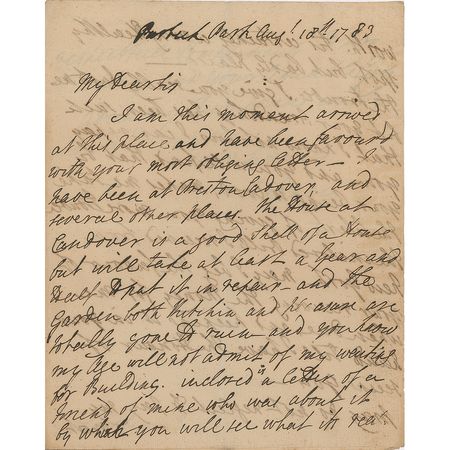 Park Augt. 18th 1783
My Dear Sir
I am this moment arrived
at this place and have been favour'd
with your most obliging letter — I
have been at Preston Candover, and
several other places. the House at
Candover is a good Shell of a House
but will take at least a year and
Half to put it in repair — and the
Garden both Kitchin and Pleasure are
totally gone to ruin — and you know
my Age will not admit of my waiting
for Building. inclosed is a letter of a
friend of mine who was about it
by which you will see what its real